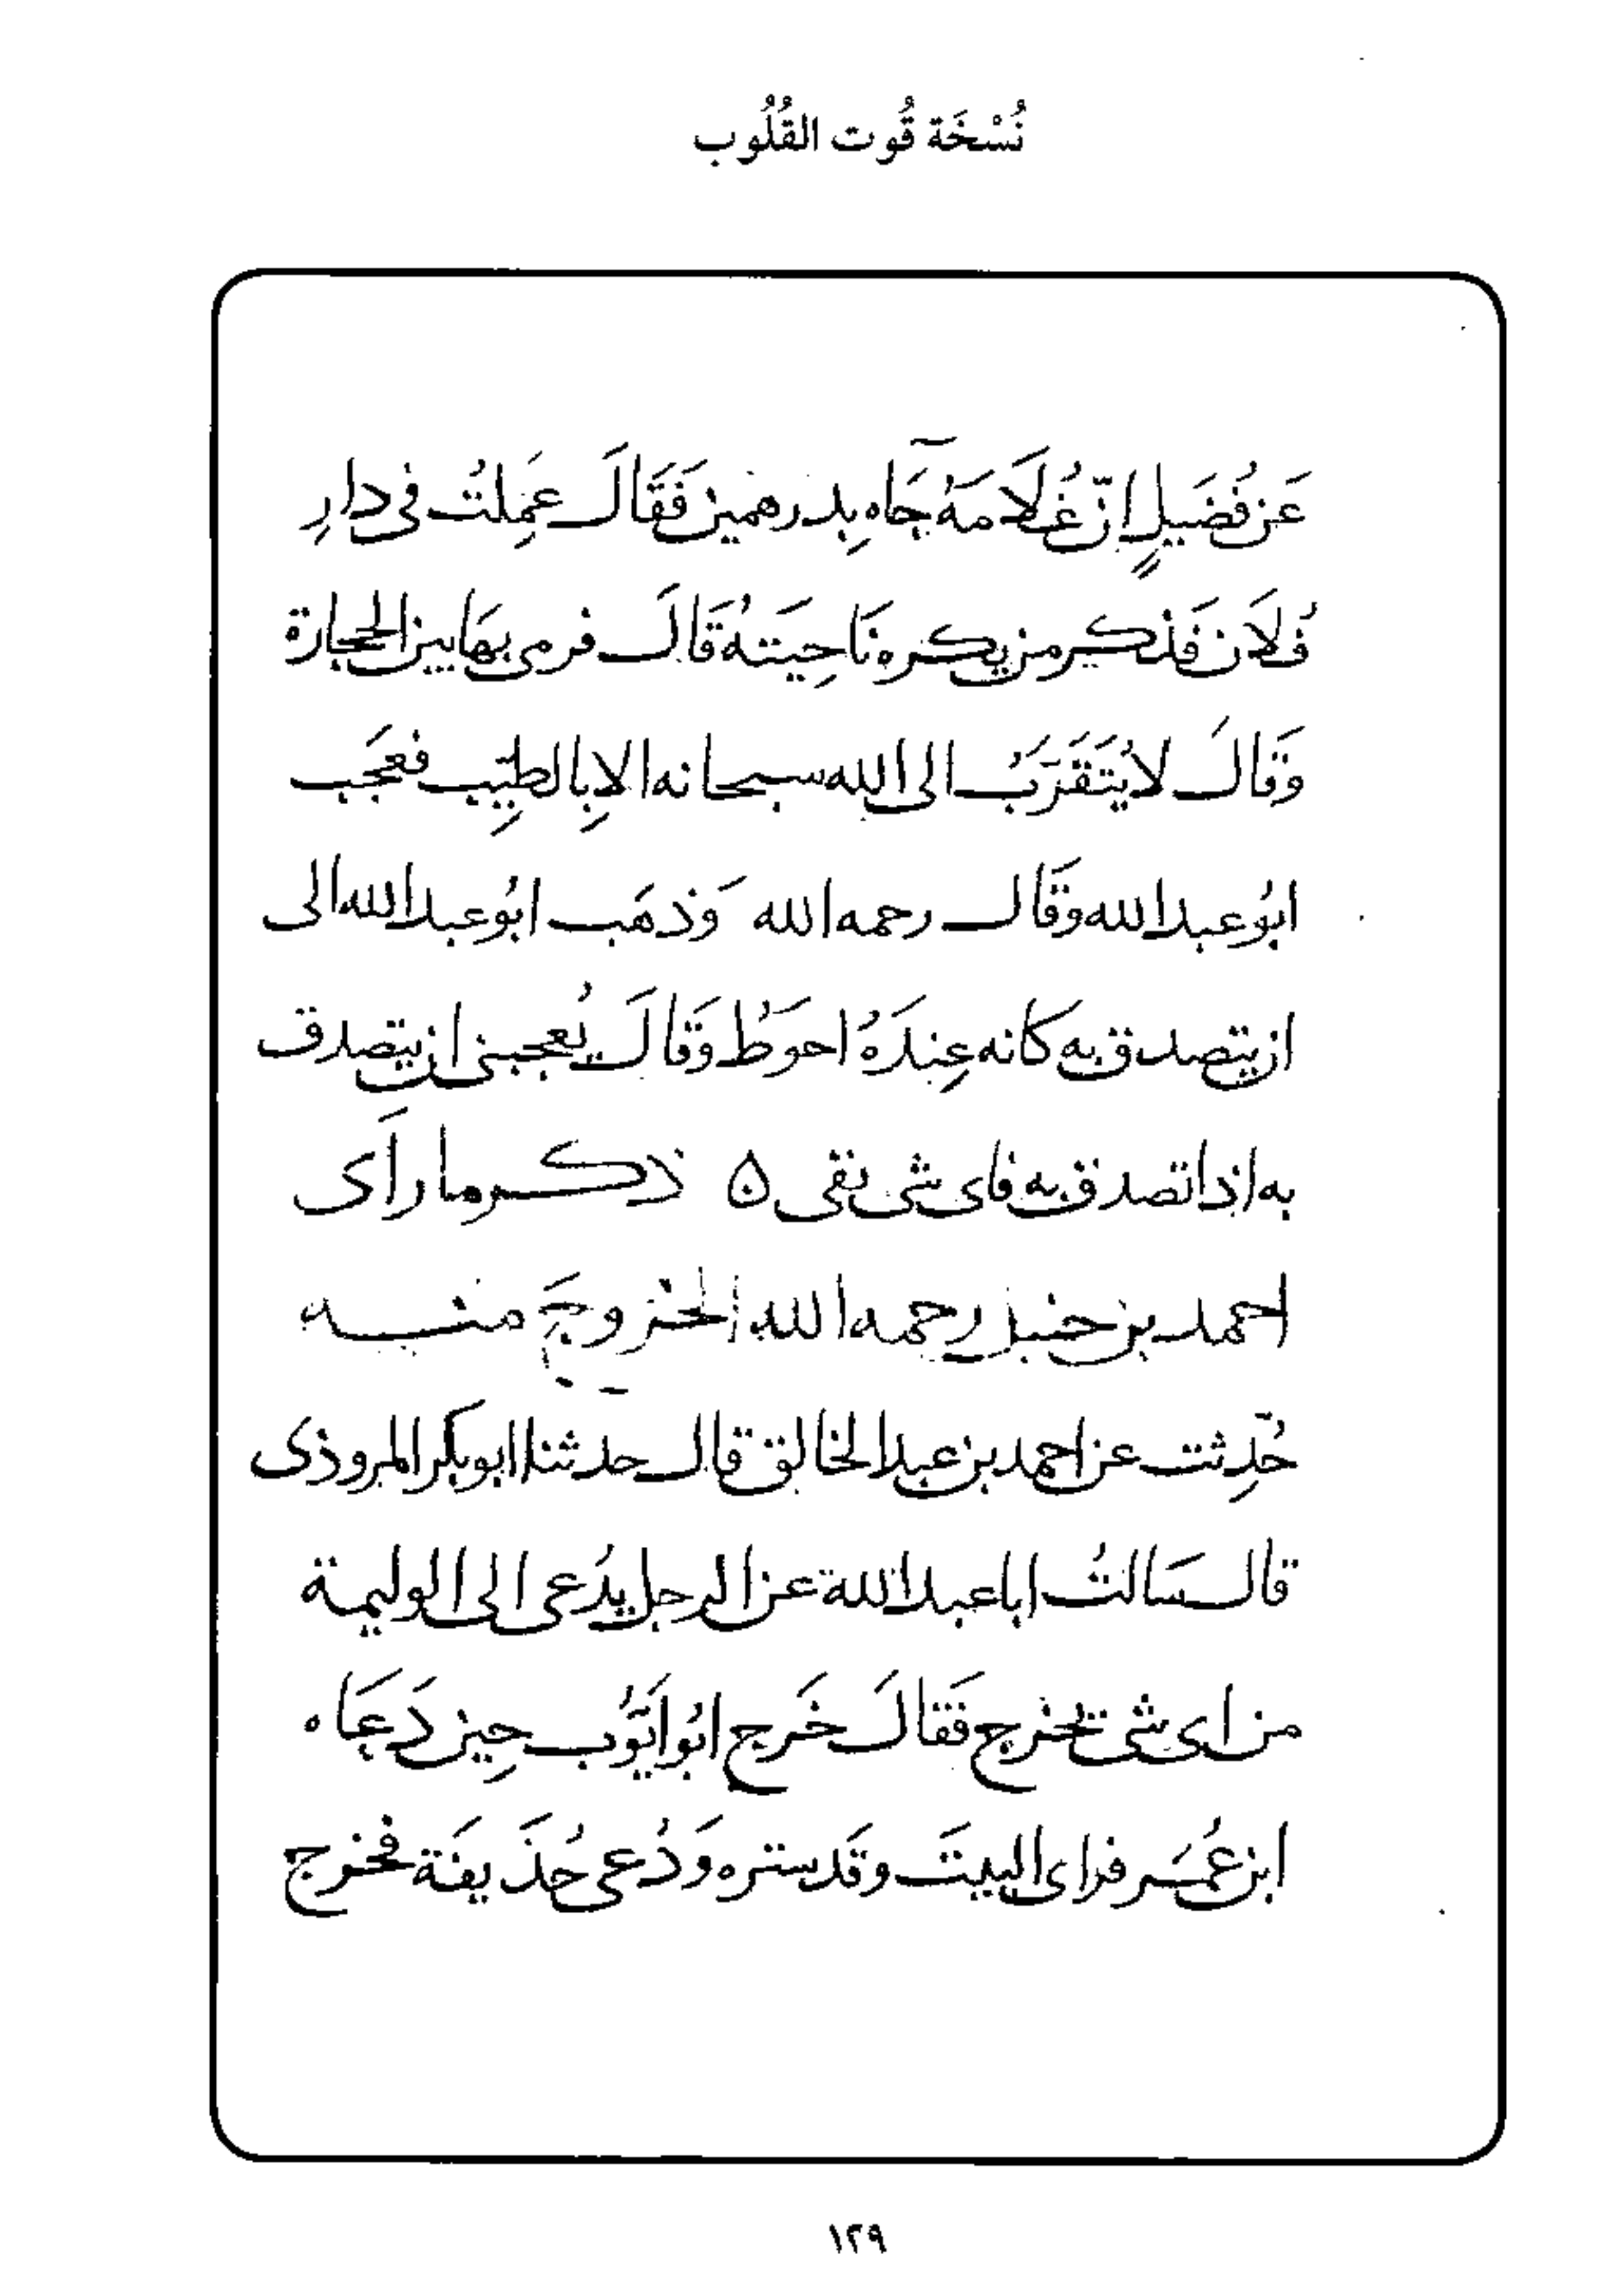 نُسْخَة قُوت القُلُوب
عَن فُضَيلٍ انّ غُلَامَهُ جَآه بِدرهمين فَقَالَ عَمِلتُ فى دارِ
فُلَان فَذكر من يكره نَاحِيَتهُ قَالَ فرمى بهَا بين الحجارة
وَقالَ لا يُتَقَرَبُ الى الله سبحانه الا بِالطيِّب فعجَب
ابُو عبد الله وقَال رحمه الله وَذهَب ابُو عبد الله الى
ان يتصدق به كانه عِندَهُ احوَطُ وَقالَ يُعجبنى ان يتصدق
به اذا تصدق به فاى شى بقى ٥ ذكر ما رأَى
احمد بن حنبل رحمه الله الخروجَ منه
حُدِّثت عن احمد بن عبد الخالق قال حدثنا ابو بكر المروذى
قال سَالتُ ابا عبد الله عن الرجل يُدعى الى الوليمة
من اى شى يخرج فَقالَ خَرج ابُو ايَوُّب حِين دَعَاه
ابن عُمَر فراى البيتَ وقَد ستره وَدُعى حُذَيفَة فخرج
١٢٩